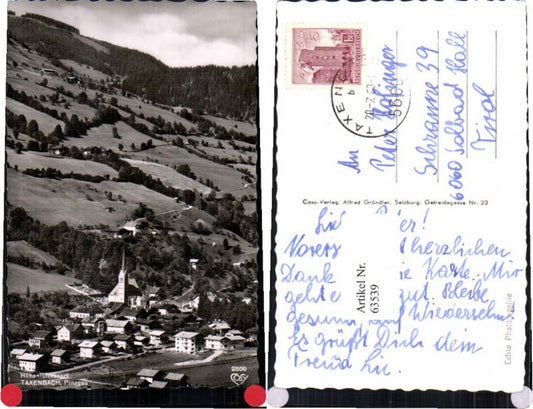 Höhenluftkurort
TAXENBACH, Pinzgau
2500
TAXENB
5660
An
Peter
Schranne 39
6060 Solbad Hall
Tirol
Cosy-Verlag, Alfred Gründler, Salzburg, Getreidegasse Nr. 22
er!
herzlichen
Dank Karte. Mir
gut. Bleibe
gesund Auf Wiedersehn
Es grüßt Dich dein
Freund
Artikel Nr.
63539
Echte Photographie